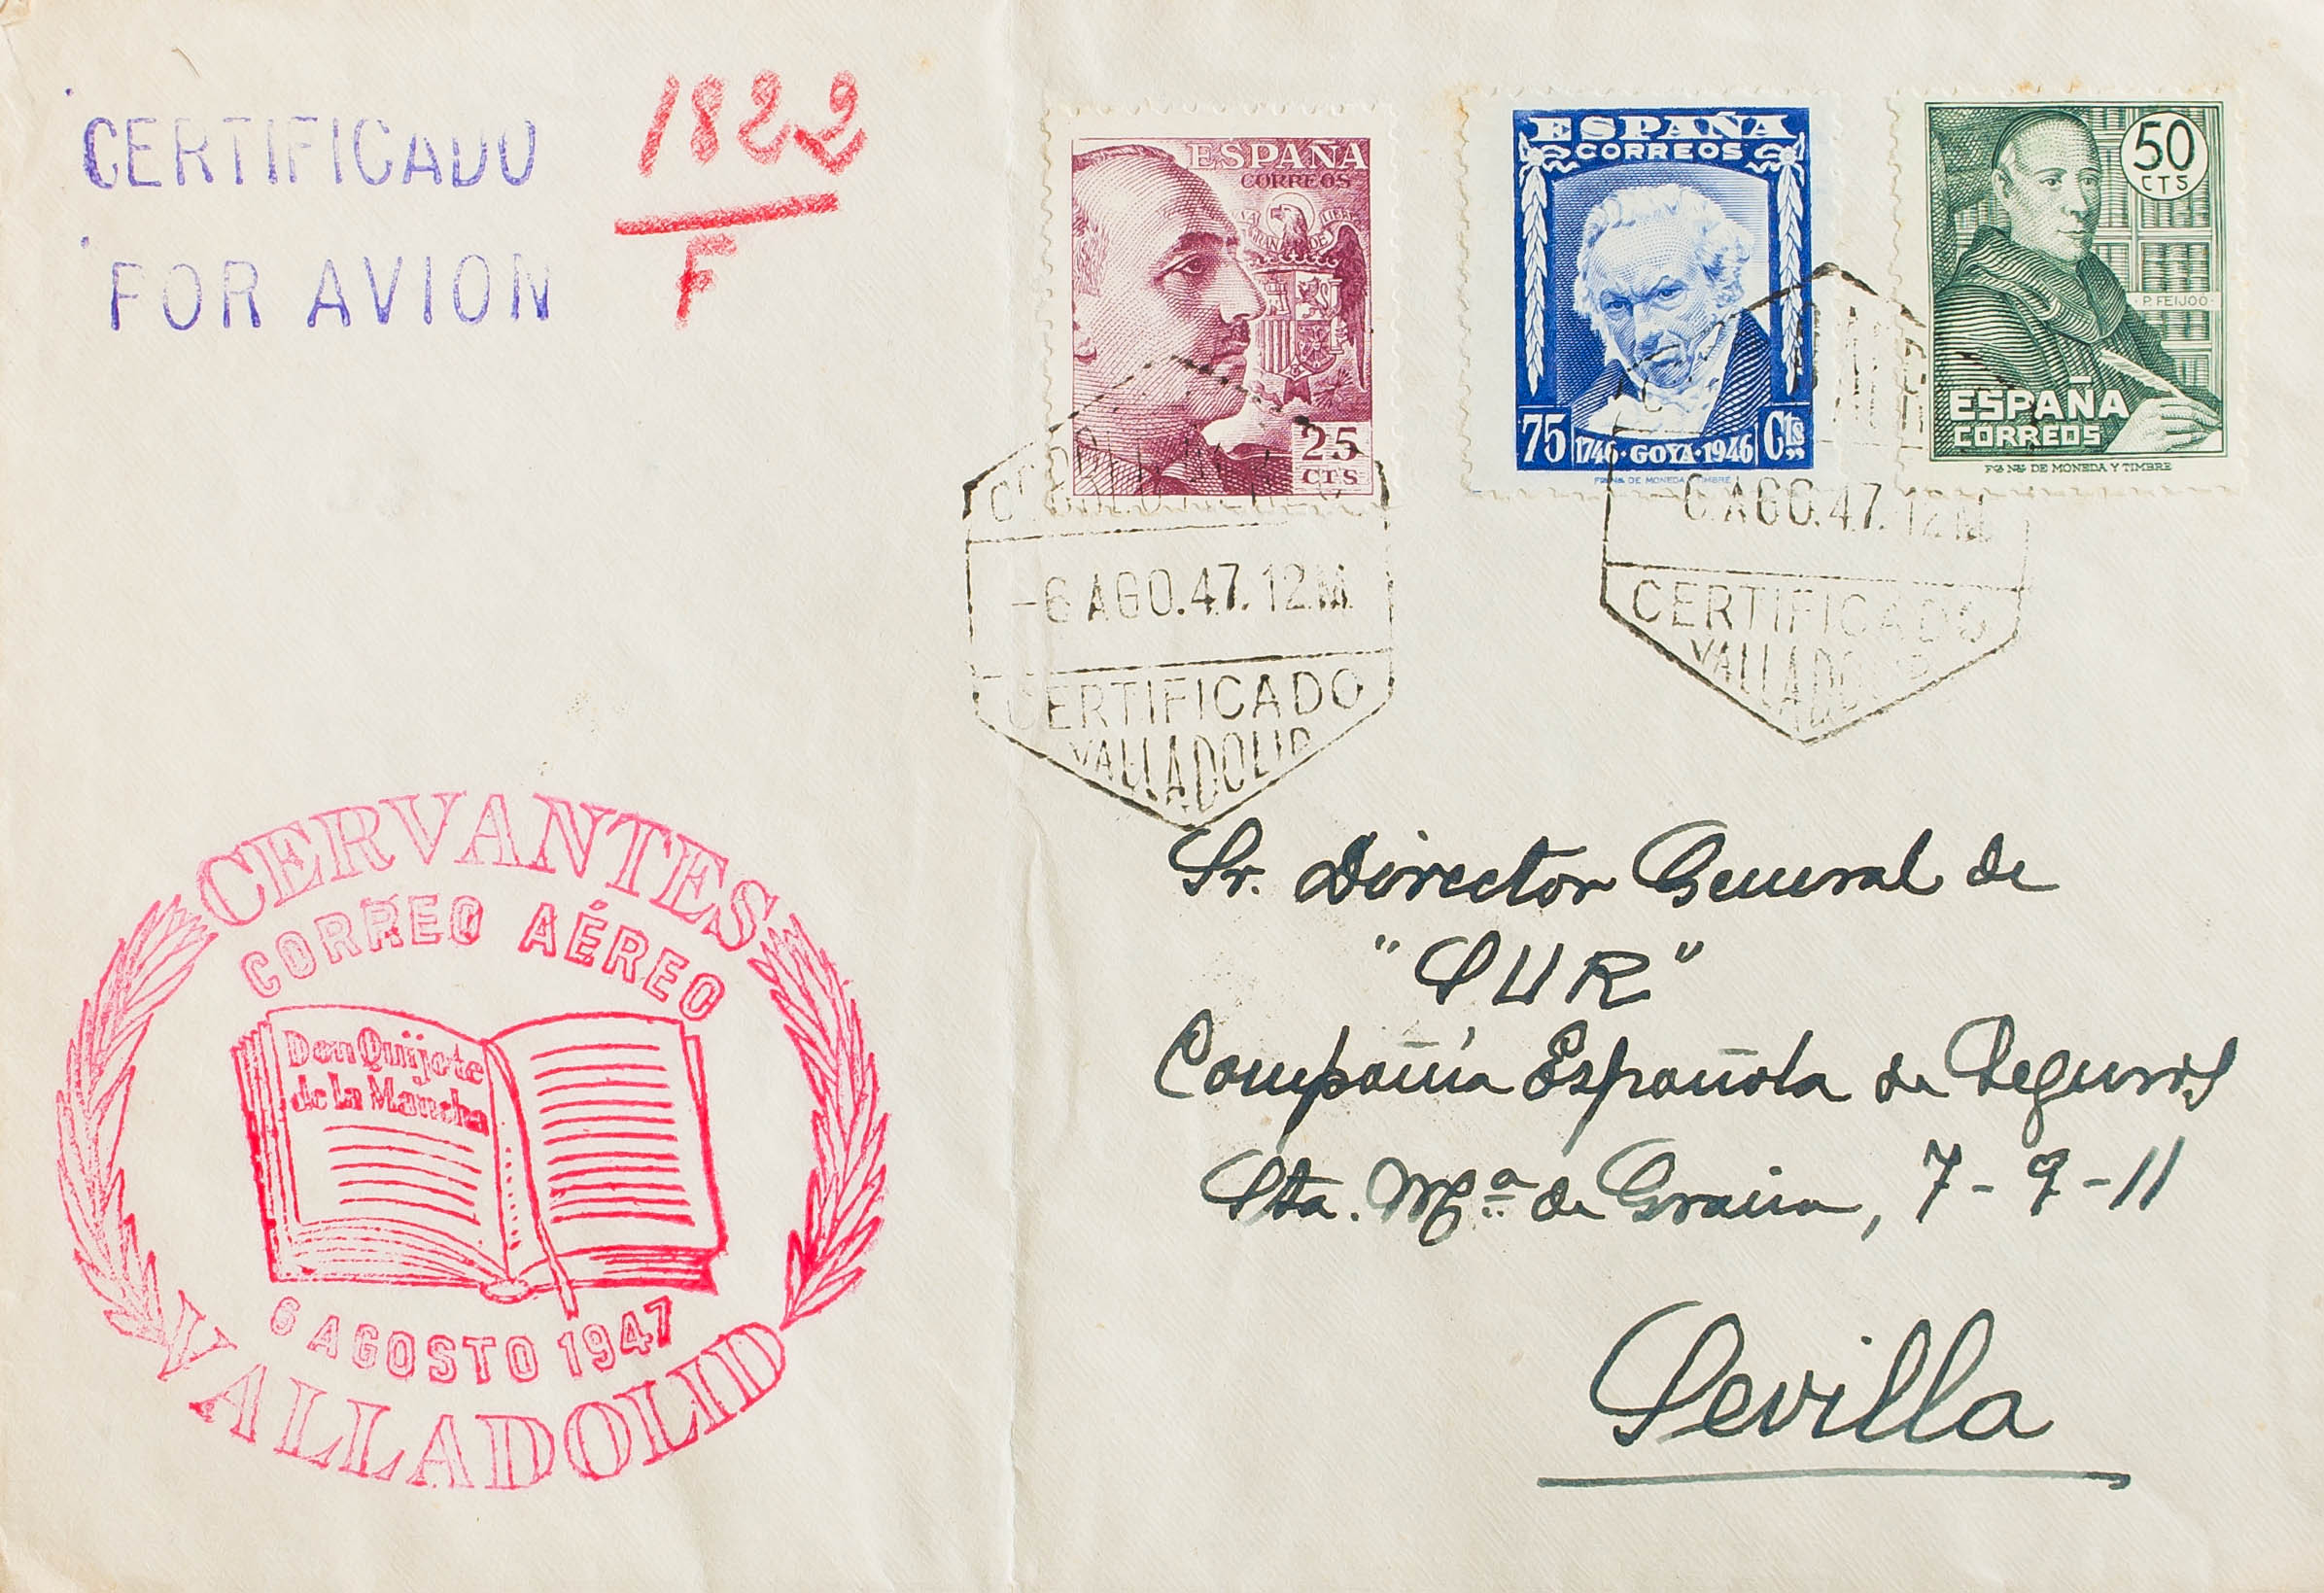 CERTIFICADO
POR AVION
1822
F
ESPAÑA
CORREOS
25
CTS
ESPAÑA
CORREOS
75
1746·GOYA·1946
Cts
50
CTS
P. FEIJOO
ESPAÑA
CORREOS
Fca Nal DE MONEDA Y TIMBRE
-6 AGO.47.12M.
CERTIFICADO
VALLADOLID
AGO.47.12M.
CERTIFICADO
VALLADOLID
CERVANTES
CORREO AÉREO
Don Quijote
de la Mancha
6 AGOSTO 1947
VALLADOLID
Sr. Director General de
"SUR"
Compañía Española de Seguros
Sta. Mª de Gracia, 7-9-11
Sevilla